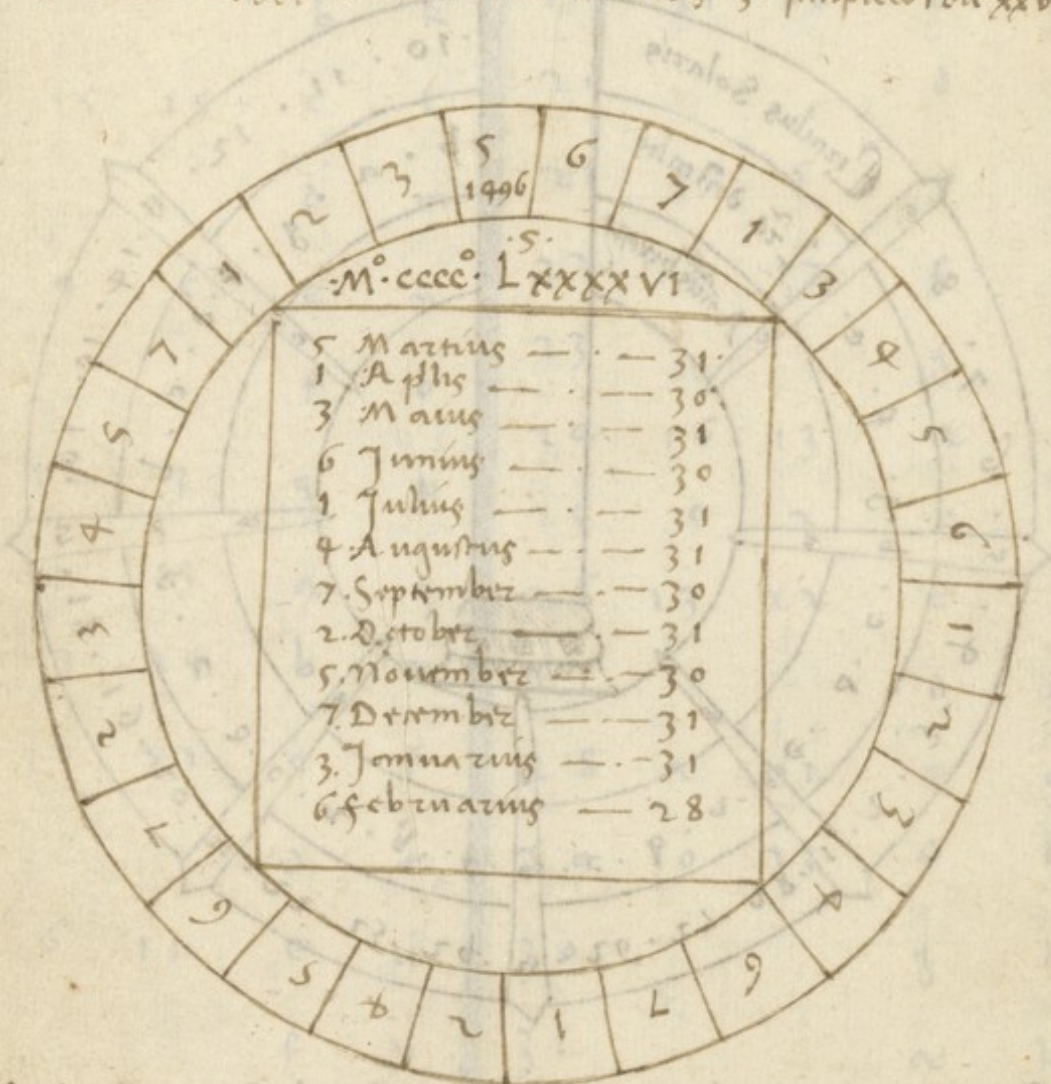 5
1496
6
7
1
3
4
5
6
1
2
3
4
6
7
1
2
4
5
6
7
2
3
4
5
7
1
2
3
·5·
·Mº·ccccº· Lxxxxvi
5 Martius — · — 31·
1 Aplis — · — 30·
3 Maius — · — 31
6 Junius — · — 30
1 Julius — · — 31
4 Augustus — · — 31
7. September — · — 30
2. October — · — 31
5. November — · — 30
7. December — · — 31
3. Januarius — · — 31
6 februarius — 28